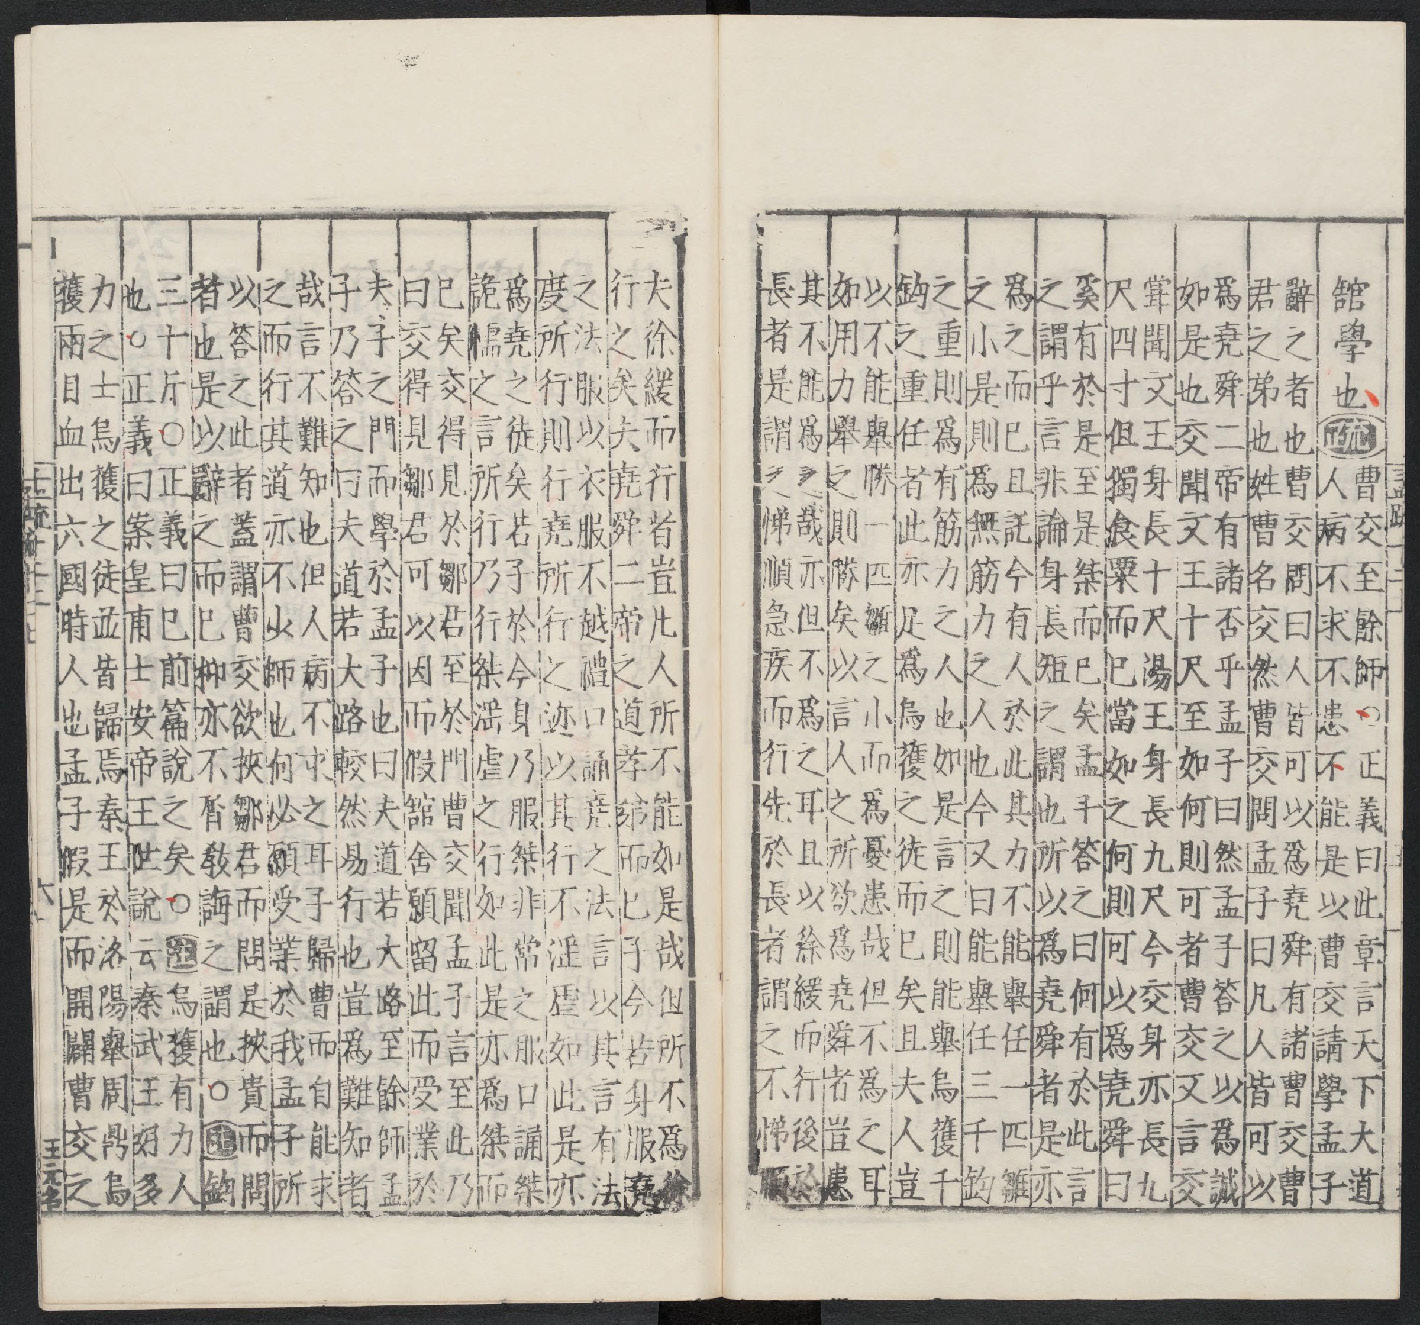 館學也疏曹交至餘師○正義曰此章言天下大道
人病不求不患不能是以曹交請學孟子
辭之者也曹交問曰人皆可以爲堯舜有諸曹交曹
君之弟也姓曹名交然曹交問孟子曰凡人皆可以
爲堯舜二帝有諸否乎孟子曰然孟子答之以爲誠
如是也交聞文王十尺至如何則可者曹交又言交
甞聞文王身長十尺湯王身長九尺今交身亦長九
尺四寸但獨食粟而已當如之何則可以爲堯舜曰
奚有於是至是桀而已矣孟子答之曰何有於此言
之謂乎言非論身長短之謂也所以爲堯舜者是亦
爲之而已且託今有人於此其力不能舉任一匹雛
之小是則爲無筋力之人也今又曰能舉任三千鈞
之重則爲有筋力之人也如是言之則能舉烏獲千
鈞之重任者此亦足爲烏獲之徒而已矣且夫人豈
以不能舉勝一匹雛之小而爲憂患哉但不爲之耳
如用力舉之則勝矣以言人之所欲爲堯舜者豈患
其不能爲之哉亦但不爲之耳且以徐緩而行後於
長者是謂之悌順急疾而行先於長者謂之不悌順
夫徐緩而行者豈凡人所不能如是哉但所不爲徐
行之矣夫堯舜二帝之道孝弟而已子今若身服堯
之法服以衣服不越禮口誦堯之法言以其言有法
度所行則行堯所行之迹以其行不淫虐如此是亦
爲堯之徒矣若子於今身乃服桀非常之服口誦桀
詭懦之言所行乃行桀淫虐之行如此是亦爲桀而
已矣交得見於鄒君至於門曹交聞孟子言至此乃
曰交得見鄒君可以因而假館舍願留此而受業於
夫子之門而學於孟子也曰夫道若大路至餘師孟
子乃答之曰夫道若大路較然易行也豈爲難知者
哉言不難知也但人病不求之耳子歸曹而自能求
之而行其道亦不少師也何必願受業於我孟子所
以答之此者蓋謂曹交欲挾鄒君而問是挾貴而問
者也是以辭之而已抑亦不屑教誨之謂也○注鈞
三十斤○正義曰已前篇說之矣○注烏獲有力人
也○正義曰案皇甫士安帝王世說云秦武王好多
力之士烏獲之徒並皆歸焉秦王於洛陽舉周鼎烏
獲兩目血出六國時人也孟子假是而開闢曹交之
六
王元名